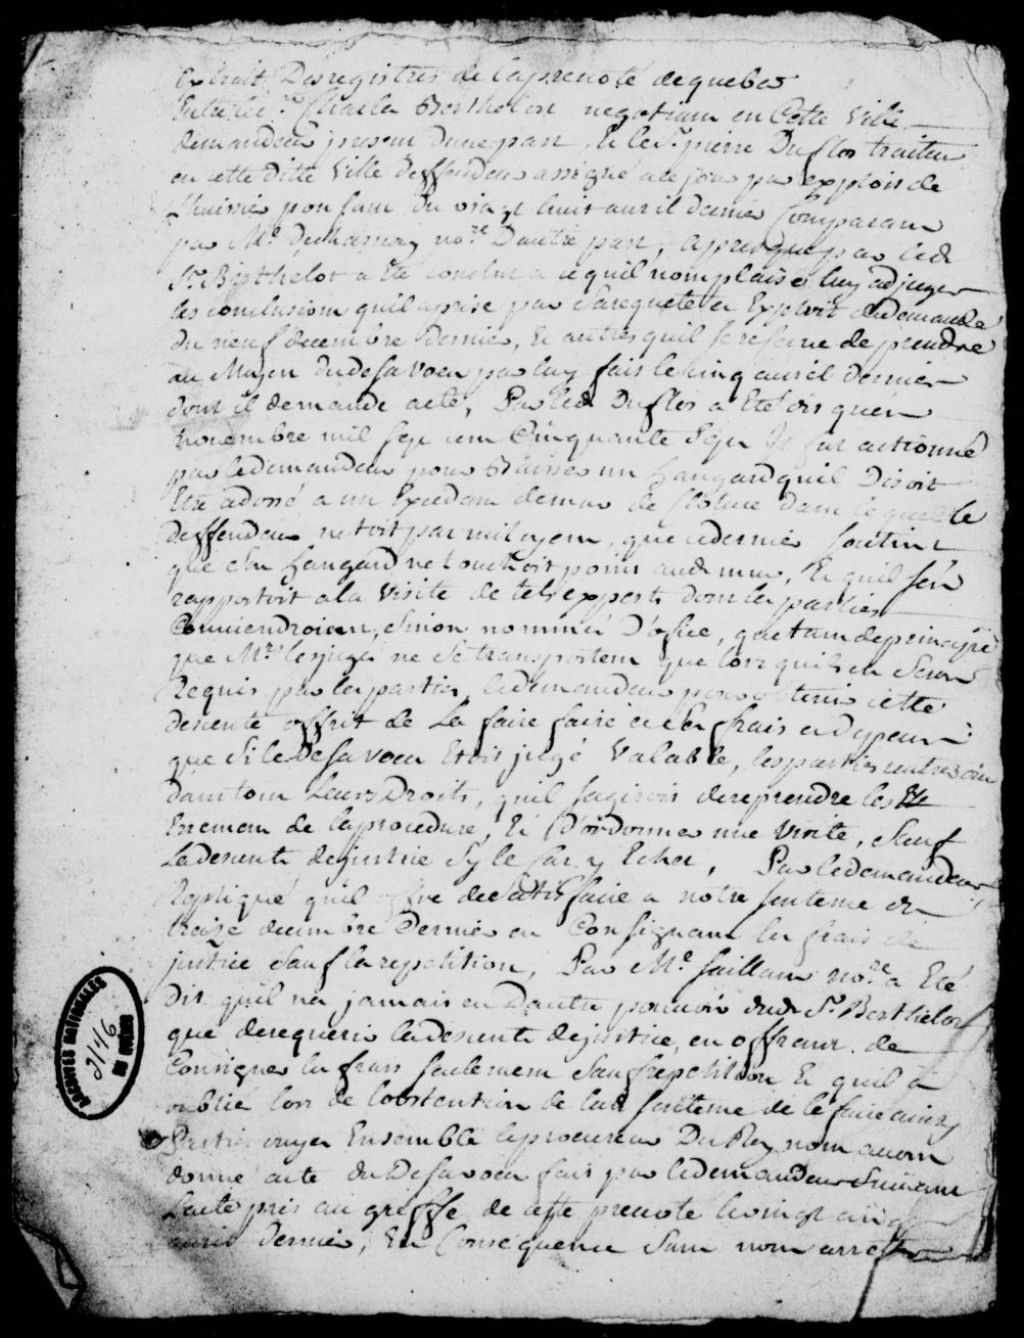 Extrait Des registres de la prevoté de quebec
Entre le Sr. Charles Berthelot negotiant en Cette Ville
demandeur present dune part, Et le Sr. pierre Duflos traiteur
en cette ditte Ville deffendeur assigné a ce jour par exploit de
Lhuissier du vingt huit avril dernier Comparant
par Me. nore. Dautre part, apres que par led
Sr. Berthelot a Eté conclut a ce quil nous plaise luy adjuger
les conclusions quil a prise par Sa requete et Exploit de demande
du neuf decembre Dernier, Et autres quil se reserve de prendre
au Moyen du desaveu par luy fait le cinq avril dernier
dont il demande acte, Par led Duflos a Eté dis quen
novembre mil sept cent Cinquante Sept Il fut actionné
par le demandeur pour Baisser un hangard quil Disoit
Etre adossé a un Excedant de mur de Cloture dans lequel le
deffendeur netoit pas mitoyen, que ce dernier soutint
que Son hangard ne touchoit point aud mur, Et quil sen
rapportoit a la Visite de tels experts dont les parties
Conviendroient, Sinon nommés D'office, quetant de principe
que Mrs. les juges ne Se transportent que lors quils en Sont
Requis par les parties, le demandeur pour obtenir cette
descente offrit de La faire faire a Ses frais et depens
que Si le Desaveu Etoit jugé Valable, les parties rentreroient
dans tous Leurs Droits, quil sagiroit de reprendre les
Erremens de la procedure, Et D'ordonner une Visite, Sauf
La descente de justice Sy le Cas y Echet, Par le demandeur
Repliqué quil offre de Satisfaire a notre sentence du
treize decembre Dernier en Consignant les frais de
justice Sauf la repetition, Par Me. Saillant nore. a Eté
dit quil na jamais eu Dautre pouvoir dud Sr. Berthelot
que de requerir la descente de justice, en offrant de
Consigner les frais seulement Sauf repetition Et quil a
oublié lors de lobtention de lad sentence de le faire
Parties ouyes Ensemble le procureur Du Roy nous avons
donné acte du Desaveu fait par le demandeur Suivant
Lacte pris au greffe de cette prevoté le vingt cinq
avril dernier, En Consequence Sans nous arreter
ARCHIVES NATIONALES
2146
DU QUÉBEC